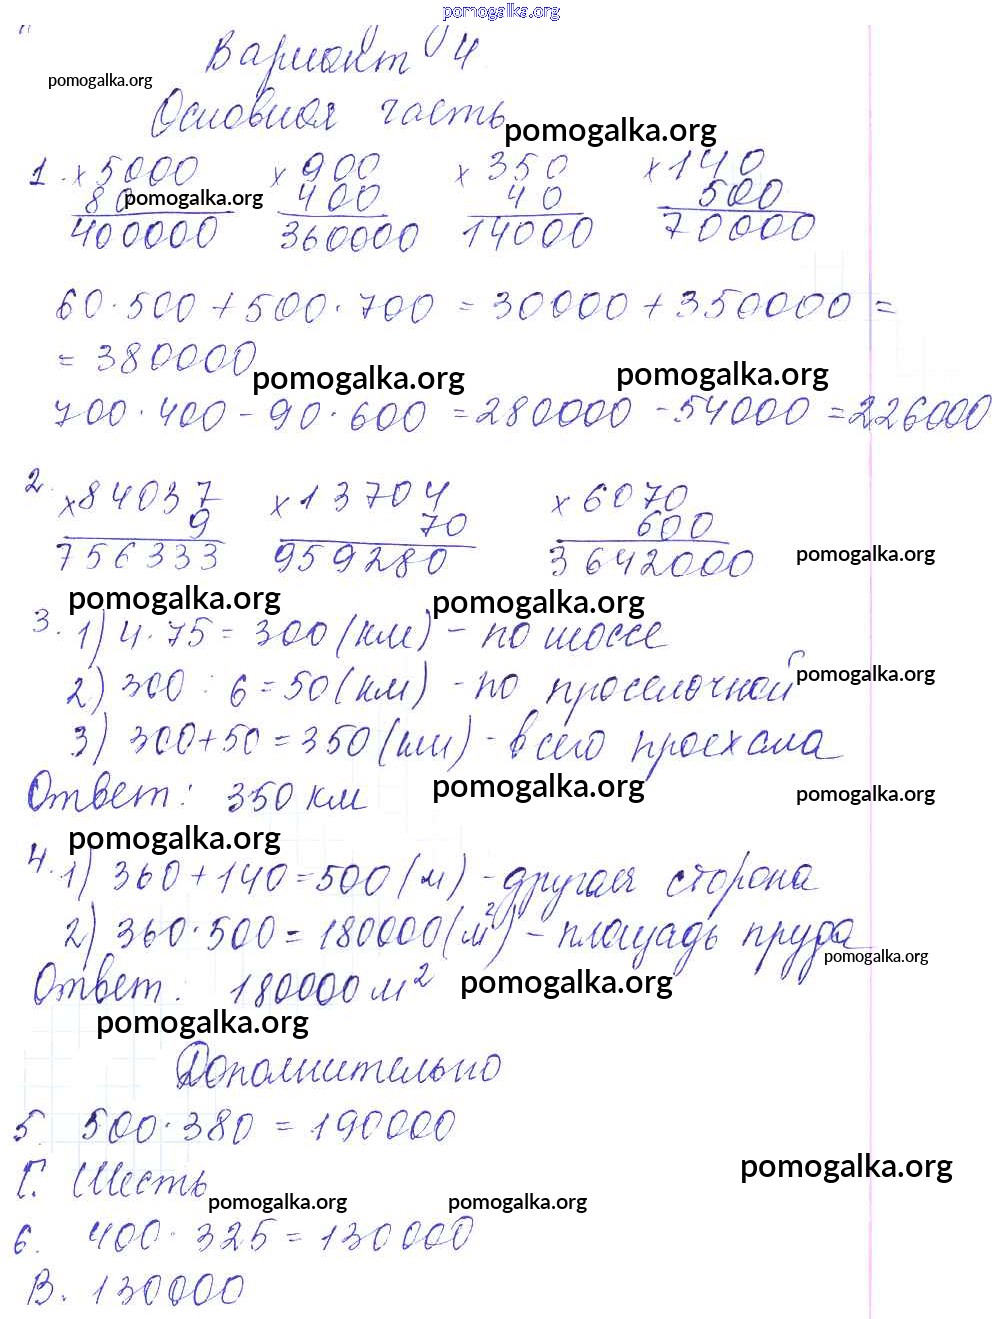 pomogalka.org
Вариант 4
pomogalka.org
Основная часть
pomogalka.org
1. × 5000 × 900 × 350 × 140
80 400 40 500
pomogalka.org
400000 360000 14000 70000
60 · 500 + 500 · 700 = 30000 + 350000 =
= 380000
pomogalka.org pomogalka.org
700 · 400 - 90 · 600 = 280000 - 54000 = 226000
2. × 84037 × 13704 × 6070
9 70 600
756333 959280 3642000
pomogalka.org
pomogalka.org pomogalka.org
3. 1) 4 · 75 = 300 (км) - по шоссе
2) 300 : 6 = 50 (км) - по проселочной
pomogalka.org
3) 300 + 50 = 350 (км) - всего проехала
Ответ: 350 км
pomogalka.org pomogalka.org
pomogalka.org
4. 1) 360 + 140 = 500 (м) - другая сторона
2) 360 · 500 = 180000 (м²) - площадь пруда
pomogalka.org
Ответ: 180000 м²
pomogalka.org
pomogalka.org
Дополнительно
5. 500 · 380 = 190000
Г. Шесть
pomogalka.org
pomogalka.org pomogalka.org
6. 400 · 325 = 130000
В. 130000